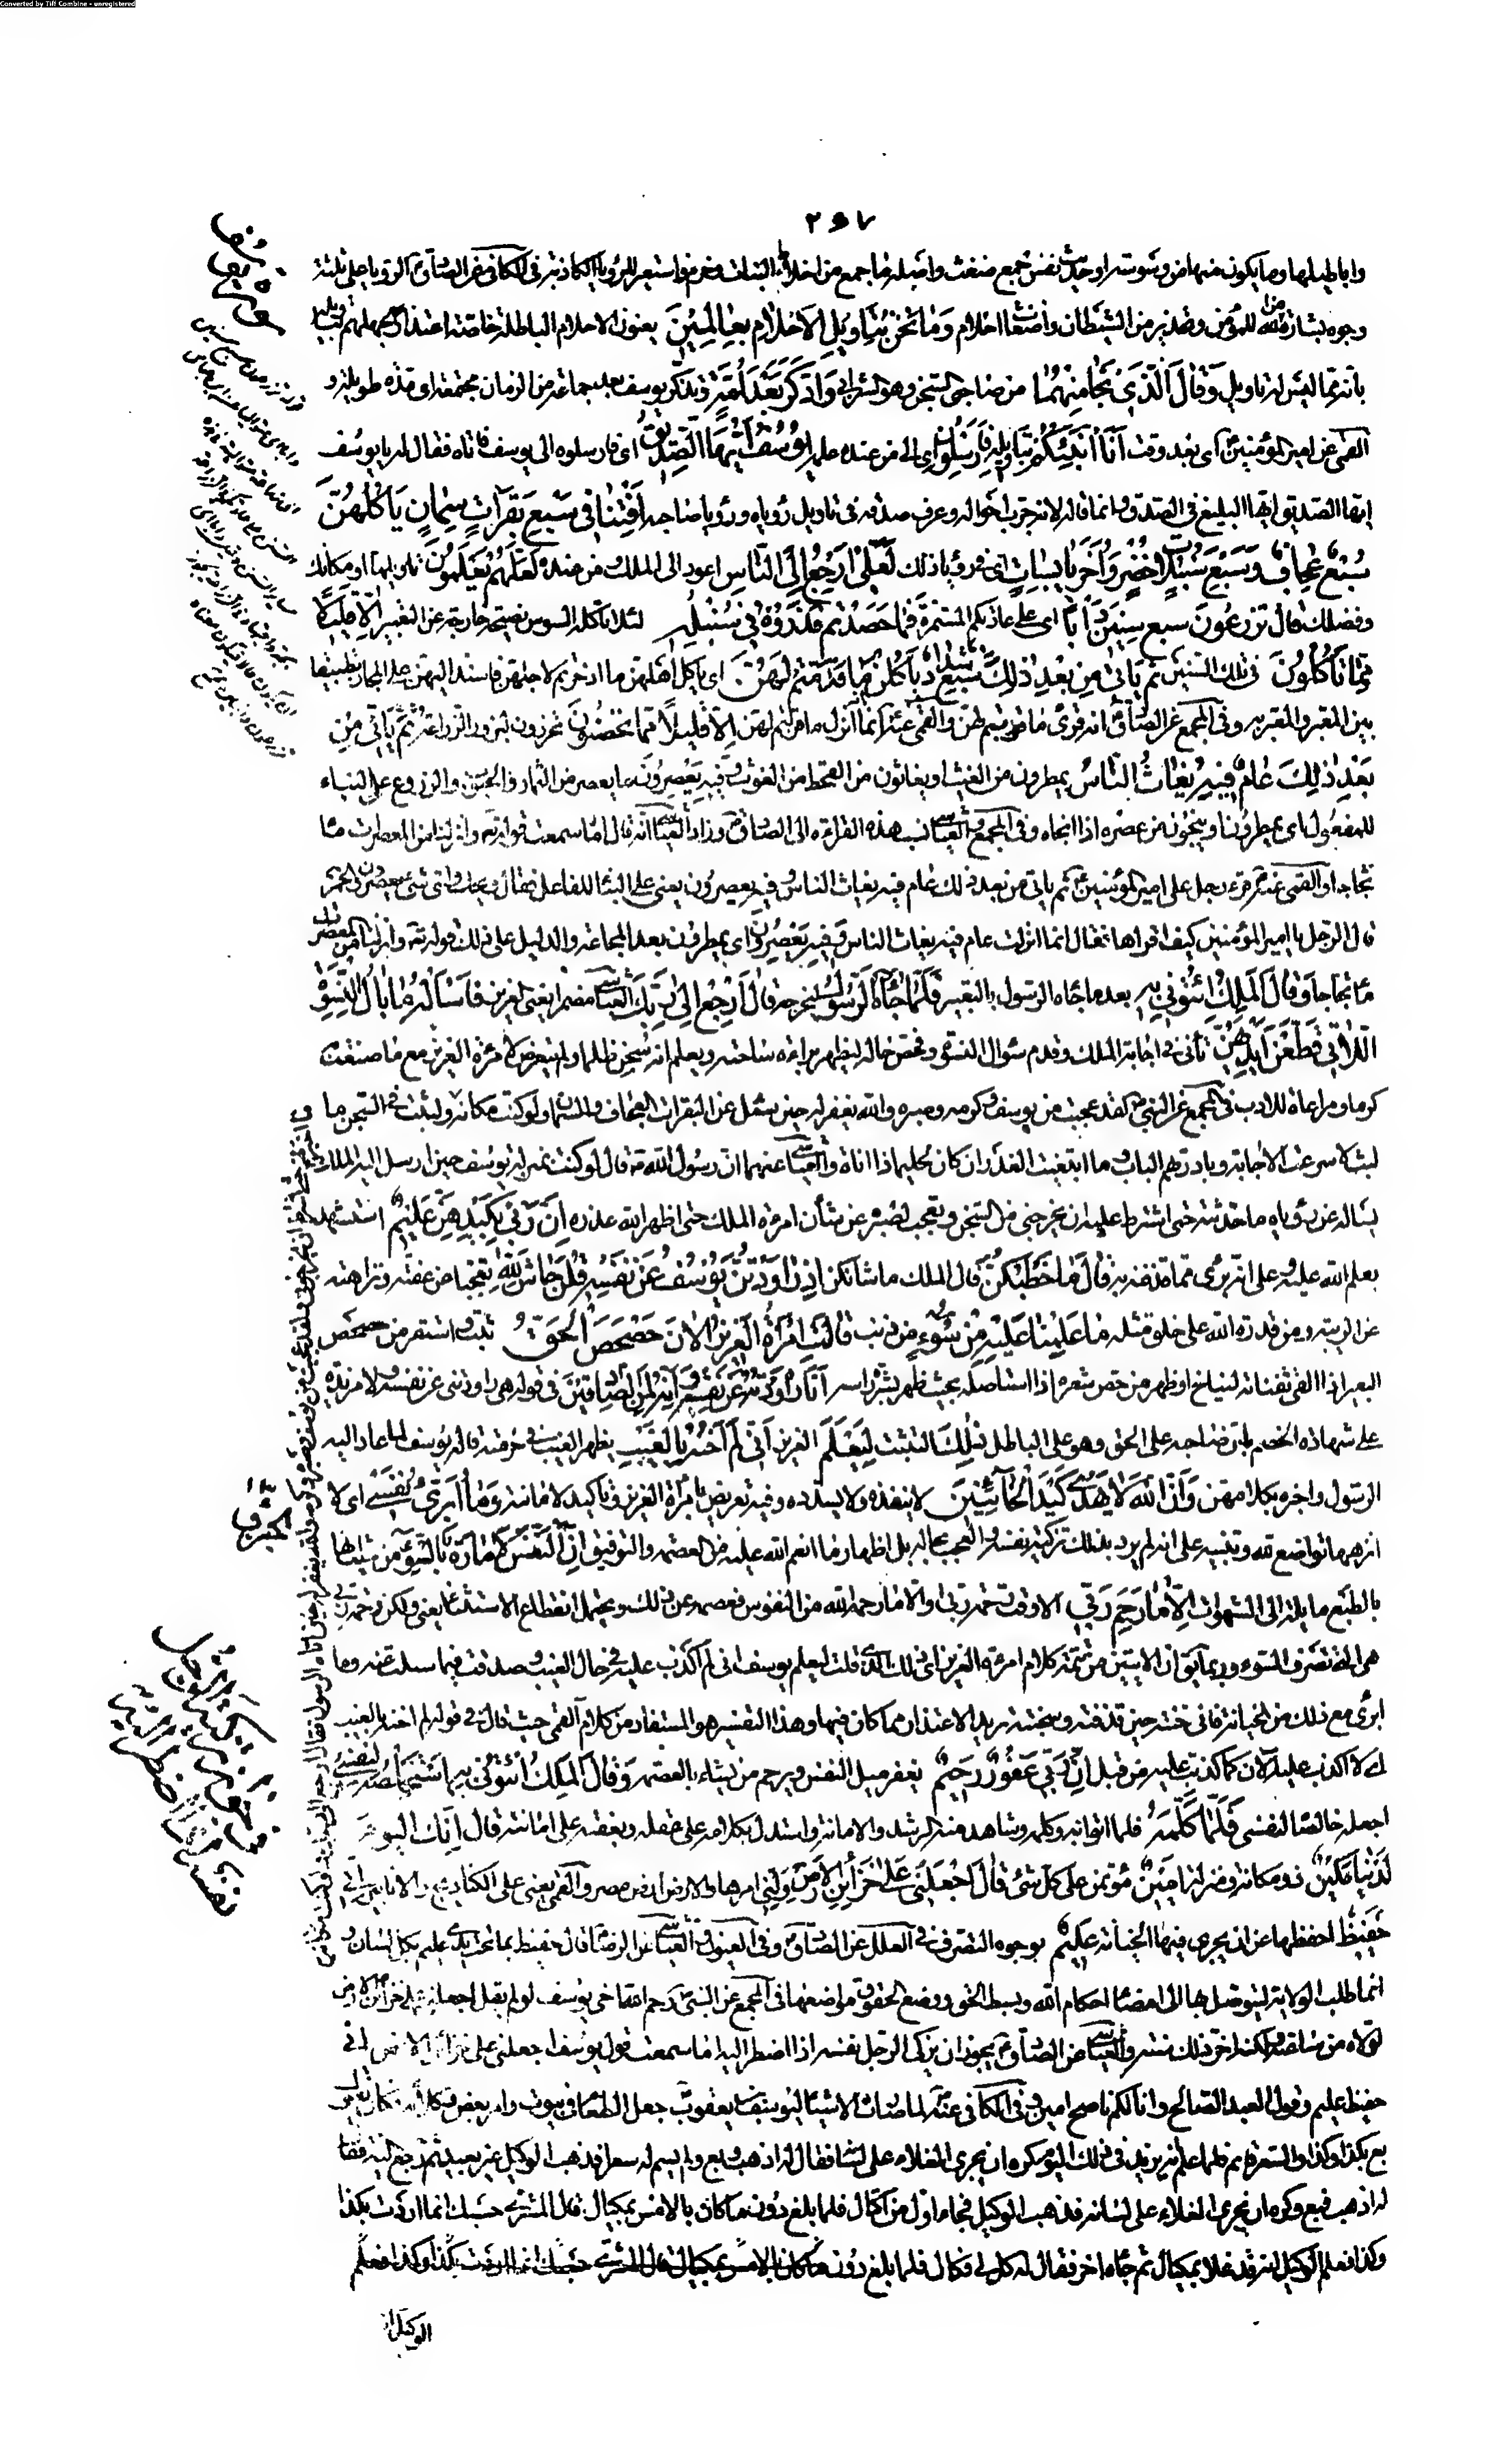 Converted by Tiff Combine - unregistered
٢٥٧
واباطيلها وما يكون منها من وسوسة او حديث نفس جمع ضغث واصله ما جمع من اخلاط النبات وحزم فاستعير للرؤيا الكاذبة في الكافي عن الصادق ع الرؤيا على ثلثة
وجوه بشارة من الله للمؤمن وتحذير من الشيطان واضغاث احلام وَمَا نَحْنُ بِتَأوِيلِ الاَحْلاَمِ بِعَالِمِينَ يعنون الاحلام الباطلة خاصة اعتذارا لجهلهم بتأويله
بانه مما ليس له تاويل وَقَالَ الَّذِي نَجَا مِنْهُمَا من صاحبى السجن وهو الشرابي وَادَّكَرَ بَعْدَ اُمَّةٍ وتذكر يوسف بعد جماعة من الزمان مجتمعة اى مدة طويلة و
القمى عن امير المؤمنين ع اى بعد وقت اَنَا اُنَبِّئُكُمْ بِتَأوِيلِهِ فَاَرْسِلُونِ اى الى من عنده علمه يُوسُفُ اَيُّهَا الصِّدِّيقُ اى فارسلوه الى يوسف فاتاه فقال له يا يوسف
ايها الصديق ايها البليغ فى الصدق وانما قاله لانه جرب احواله وعرف صدقه فى تاويل رؤياه ورؤيا صاحبه اَفْتِنَا فِي سَبْعِ بَقَرَاتٍ سِمَانٍ يَأكُلُهُنَّ
سَبْعٌ عِجَافٌ وَسَبْعِ سُنْبُلاَتٍ خُضْرٍ وَاُخَرَ يَابِسَاتٍ اى فى رؤيا ذلك لَعَلِّي اَرْجِعُ اِلَى النَّاسِ اعود الى الملك ومن عنده لَعَلَّهُمْ يَعْلَمُونَ تاويلها او مكانك
وفضلك قَالَ تَزْرَعُونَ سَبْعَ سِنِينَ دَاَباً اى على عادتكم المستمرة فَمَا حَصَدْتُمْ فَذَرُوهُ فِي سُنْبُلِهِ لئلا تاكله السوس نصيحة خارجة عن التعبير اِلاَّ قَلِيلاً
مِمَّا تَأكُلُونَ فى تلك السنين ثُمَّ يَأتِي مِنْ بَعْدِ ذَلِكَ سَبْعٌ شِدَادٌ يَأكُلْنَ مَا قَدَّمْتُمْ لَهُنَّ اى ياكل اهلهن ما ادخرتم لاجلهن فاسند اليهن على المجاز تطبيقا
بين المعبر والمعبر به وفى المجمع عن الصادق ع انه قرئ ما قربتم لهن والقمى عنه ع انما انزل ما قربتم لهن اِلاَّ قَلِيلاً مِمَّا تُحْصِنُونَ تحرزون لبزور الزراعة ثُمَّ يَأتِي مِنْ
بَعْدِ ذَلِكَ عَامٌ فِيهِ يُغَاثُ النَّاسُ يمطرون من الغيث او يغاثون من القحط من الغوث وَفِيهِ يَعْصِرُونَ ما يعصر من الثمار والحبوب والزروع على البناء
للمفعول اى يمطرون او ينجون من عصره اذا انجاه وفى المجمع والعياشى نسب هذه القراءة الى الصادق ع وزاد العياشى انه قال اما سمعت قوله تع وانزلنا من المعصرات ماء
ثجاجا والقمى عنه ع قرء رجل على امير المؤمنين ع ثم ياتى من بعد ذلك عام فيه يغاث الناس وفيه يعصرون يعنى على البناء للفاعل فقال ويحك واى شئ يعصرون الخمر
قال الرجل يا امير المؤمنين كيف اقراها فقال انما انزلت عام فيه يغاث الناس وَفِيهِ يُعْصَرُونَ اى يمطرون بعد المجاعة والدليل على ذلك قوله تع وانزلنا من المعصرات
ماء ثجاجا وَقَالَ الْمَلِكُ ائْتُونِي بِهِ بعد ما جاءه الرسول بالتعبير فَلَمَّا جَاءَهُ الرَّسُولُ ليخرجه قَالَ ارْجِعْ اِلَى رَبِّكَ العياشى يعنى العزيز فَاسْأَلْهُ مَا بَالُ النِّسْوَةِ
اللاَّتِي قَطَّعْنَ اَيْدِيَهُنَّ تانى فى اجابة الملك وقدم سؤال النسوة وفحص حاله ليظهر براءة ساحته ويعلم انه سجن ظلما ولم يتعرض لامرءة العزيز مع ما صنعت
كرما ومراعاة للادب فى المجمع عن النبي ص لقد عجبت من يوسف وكرمه وصبره والله يغفر له حين سئل عن البقرات العجاف والسمان ولو كنت مكانه ولبثت فى السجن ما
لبث لاسرعت الاجابة وبادرتهم الباب وما ابتغيت العذر ان كان لحليما ذا اناة والعياشى عنهما ان رسول الله ص قال لو كنت بمنزلة يوسف حين ارسل اليه الملك
يسأله عن رؤياه ما حدثته حتى اشترط عليه ان يخرجنى من السجن وتعجبت لصبره عن شأن امرءة الملك حتى اظهر الله عذره اِنَّ رَبِّي بِكَيْدِهِنَّ عَلِيمٌ استشهد
بعلم الله عليه وعلى انه برئ مما قذفنه به قَالَ مَا خَطْبُكُنَّ قال الملك ما شأنكن اِذْ رَاوَدْتُنَّ يُوسُفَ عَنْ نَفْسِهِ قُلْنَ حَاشَ لِلَّهِ تعجبا من عفته ونزاهته
عن الريبة ومن قدرة الله على خلق مثله مَا عَلِمْنَا عَلَيْهِ مِنْ سُوءٍ من ذنب قَالَتِ امْرَأَةُ الْعَزِيزِ الْآنَ حَصْحَصَ الْحَقُّ ثبت واستقر من حصحص
البعير اذا القى ثفناته ليناخ او ظهر من حص شعره اذا استاصله بحيث ظهر بشرة راسه اَنَا رَاوَدْتُهُ عَنْ نَفْسِهِ وَاِنَّهُ لَمِنَ الصَّادِقِينَ فى قوله هى راودتنى عن نفسى ولا مزيد
على شهادة الخصم بان صاحبه على الحق وهو على الباطل ذَلِكَ التثبت لِيَعْلَمَ العزيز اَنِّي لَمْ اَخُنْهُ بِالْغَيْبِ بظهر الغيب فى حرمته قاله يوسف لما عاد اليه
الرسول واخبره بكلامهن وَاَنَّ اللَّهَ لاَ يَهْدِي كَيْدَ الْخَائِنِينَ لا ينفذه ولا يسدده وفيه تعريض بامراة العزيز وتاكيد لامانته وَمَا اُبَرِّئُ نَفْسِي اى لا
انزهها تواضع لله وتنبيه على انه لم يرد بذلك تزكية نفسه والعجب بحاله بل اظهار ما انعم الله عليه من العصمة والتوفيق اِنَّ النَّفْسَ لَاَمَّارَةٌ بِالسُّوءِ من حيث انها
بالطبع مايلة الى الشهوات اِلاَّ مَا رَحِمَ رَبِّي الا وقت رحمة ربى او الا ما رحمه الله من النفوس فعصمه عن ذلك ويحتمل انقطاع الاستثناء يعنى ولكن رحمة ربى
هى التى تصرف السوء وربما يق ان الايتين من تتمة كلام امرءة العزيز اى ذلك الذى قلت ليعلم يوسف انى لم اكذب عليه فى حال الغيب وصدقت فيما سئلت عنه وما
ابرئ مع ذلك من الخيانة فانى خنته حين قذفته وسجنته تريد الاعتذار مما كان فيها وهذا التفسير هو المستفاد من كلام القمى حيث قال فى قوله لم اخنه بالغيب
اى لا اكذب عليه الان كما كذبت عليه من قبل اِنَّ رَبِّي غَفُورٌ رَحِيمٌ يغفر ميل النفس ويرحم من يشاء بالعصمة وَقَالَ الْمَلِكُ ائْتُونِي بِهِ اَسْتَخْلِصْهُ لِنَفْسِي
اجعله خالصا لنفسى فَلَمَّا كَلَّمَهُ فلما اتوا به وكلمه وشاهد منه الرشد والامانة واستدل بكلامه على عقله وبعفته على امانته قَالَ اِنَّكَ الْيَوْمَ
لَدَيْنَا مَكِينٌ ذو مكانة ومنزلة اَمِينٌ مؤتمن على كل شئ قَالَ اجْعَلْنِي عَلَى خَزَائِنِ الْاَرْضِ ولنى امرها والارض ارض مصر والقمى يعنى على الكناديج والانابير اِنِّي
حَفِيظٌ احفظها عن ان يجرى فيها الخيانة عَلِيمٌ بوجوه التصرف فى العلل عن الصادق ع وفى العيون والعياشى عن الرضا ع قال حفيظ بما تحت يدى عليم بكل لسان و
انما طلب الولاية ليتوصل بها الى امضاء احكام الله وبسط الحق ووضع الحقوق مواضعها فى المجمع عن النبى ص رحم الله اخى يوسف لو لم يقل اجعلنى على خزائن الارض
لولاه من ساعته ولكنه اخر ذلك سنة والعياشى عن الصادق ع يجوز ان يزكى الرجل نفسه اذا اضطر اليه اما سمعت قول يوسف اجعلنى على خزائن الارض انى
حفيظ عليم وقول العبد الصالح وانا لكم ناصح امين وفى الكافى عنه ع لما صارت الاشياء ليوسف بن يعقوب جعل الطعام فى بيوت وامر بعض وكلائه فكان يقول
بع بكذا وكذا والسعر قايم فلما علم انه يزيد فى ذلك اليوم كره ان يجرى الغلاء على لسانه فقال له اذهب وبع ولم يسم له سعرا فذهب الوكيل غير بعيد ثم رجع اليه فقال
له اذهب فبع وكره ان يجرى الغلاء على لسانه فذهب الوكيل فجاء اول من اكتال فلما بلغ دون ما كان بالامس بمكيال قال المشترى حسبك انما اردت بكذا
وكذا فعلم الوكيل انه قد غلا بمكيال ثم جاءه اخر فقال له كل لى فكال فلما بلغ دون ما كان بالامس بمكيال قال المشترى حسبك انما اردت بكذا وكذا فعلم
الوكيل انه